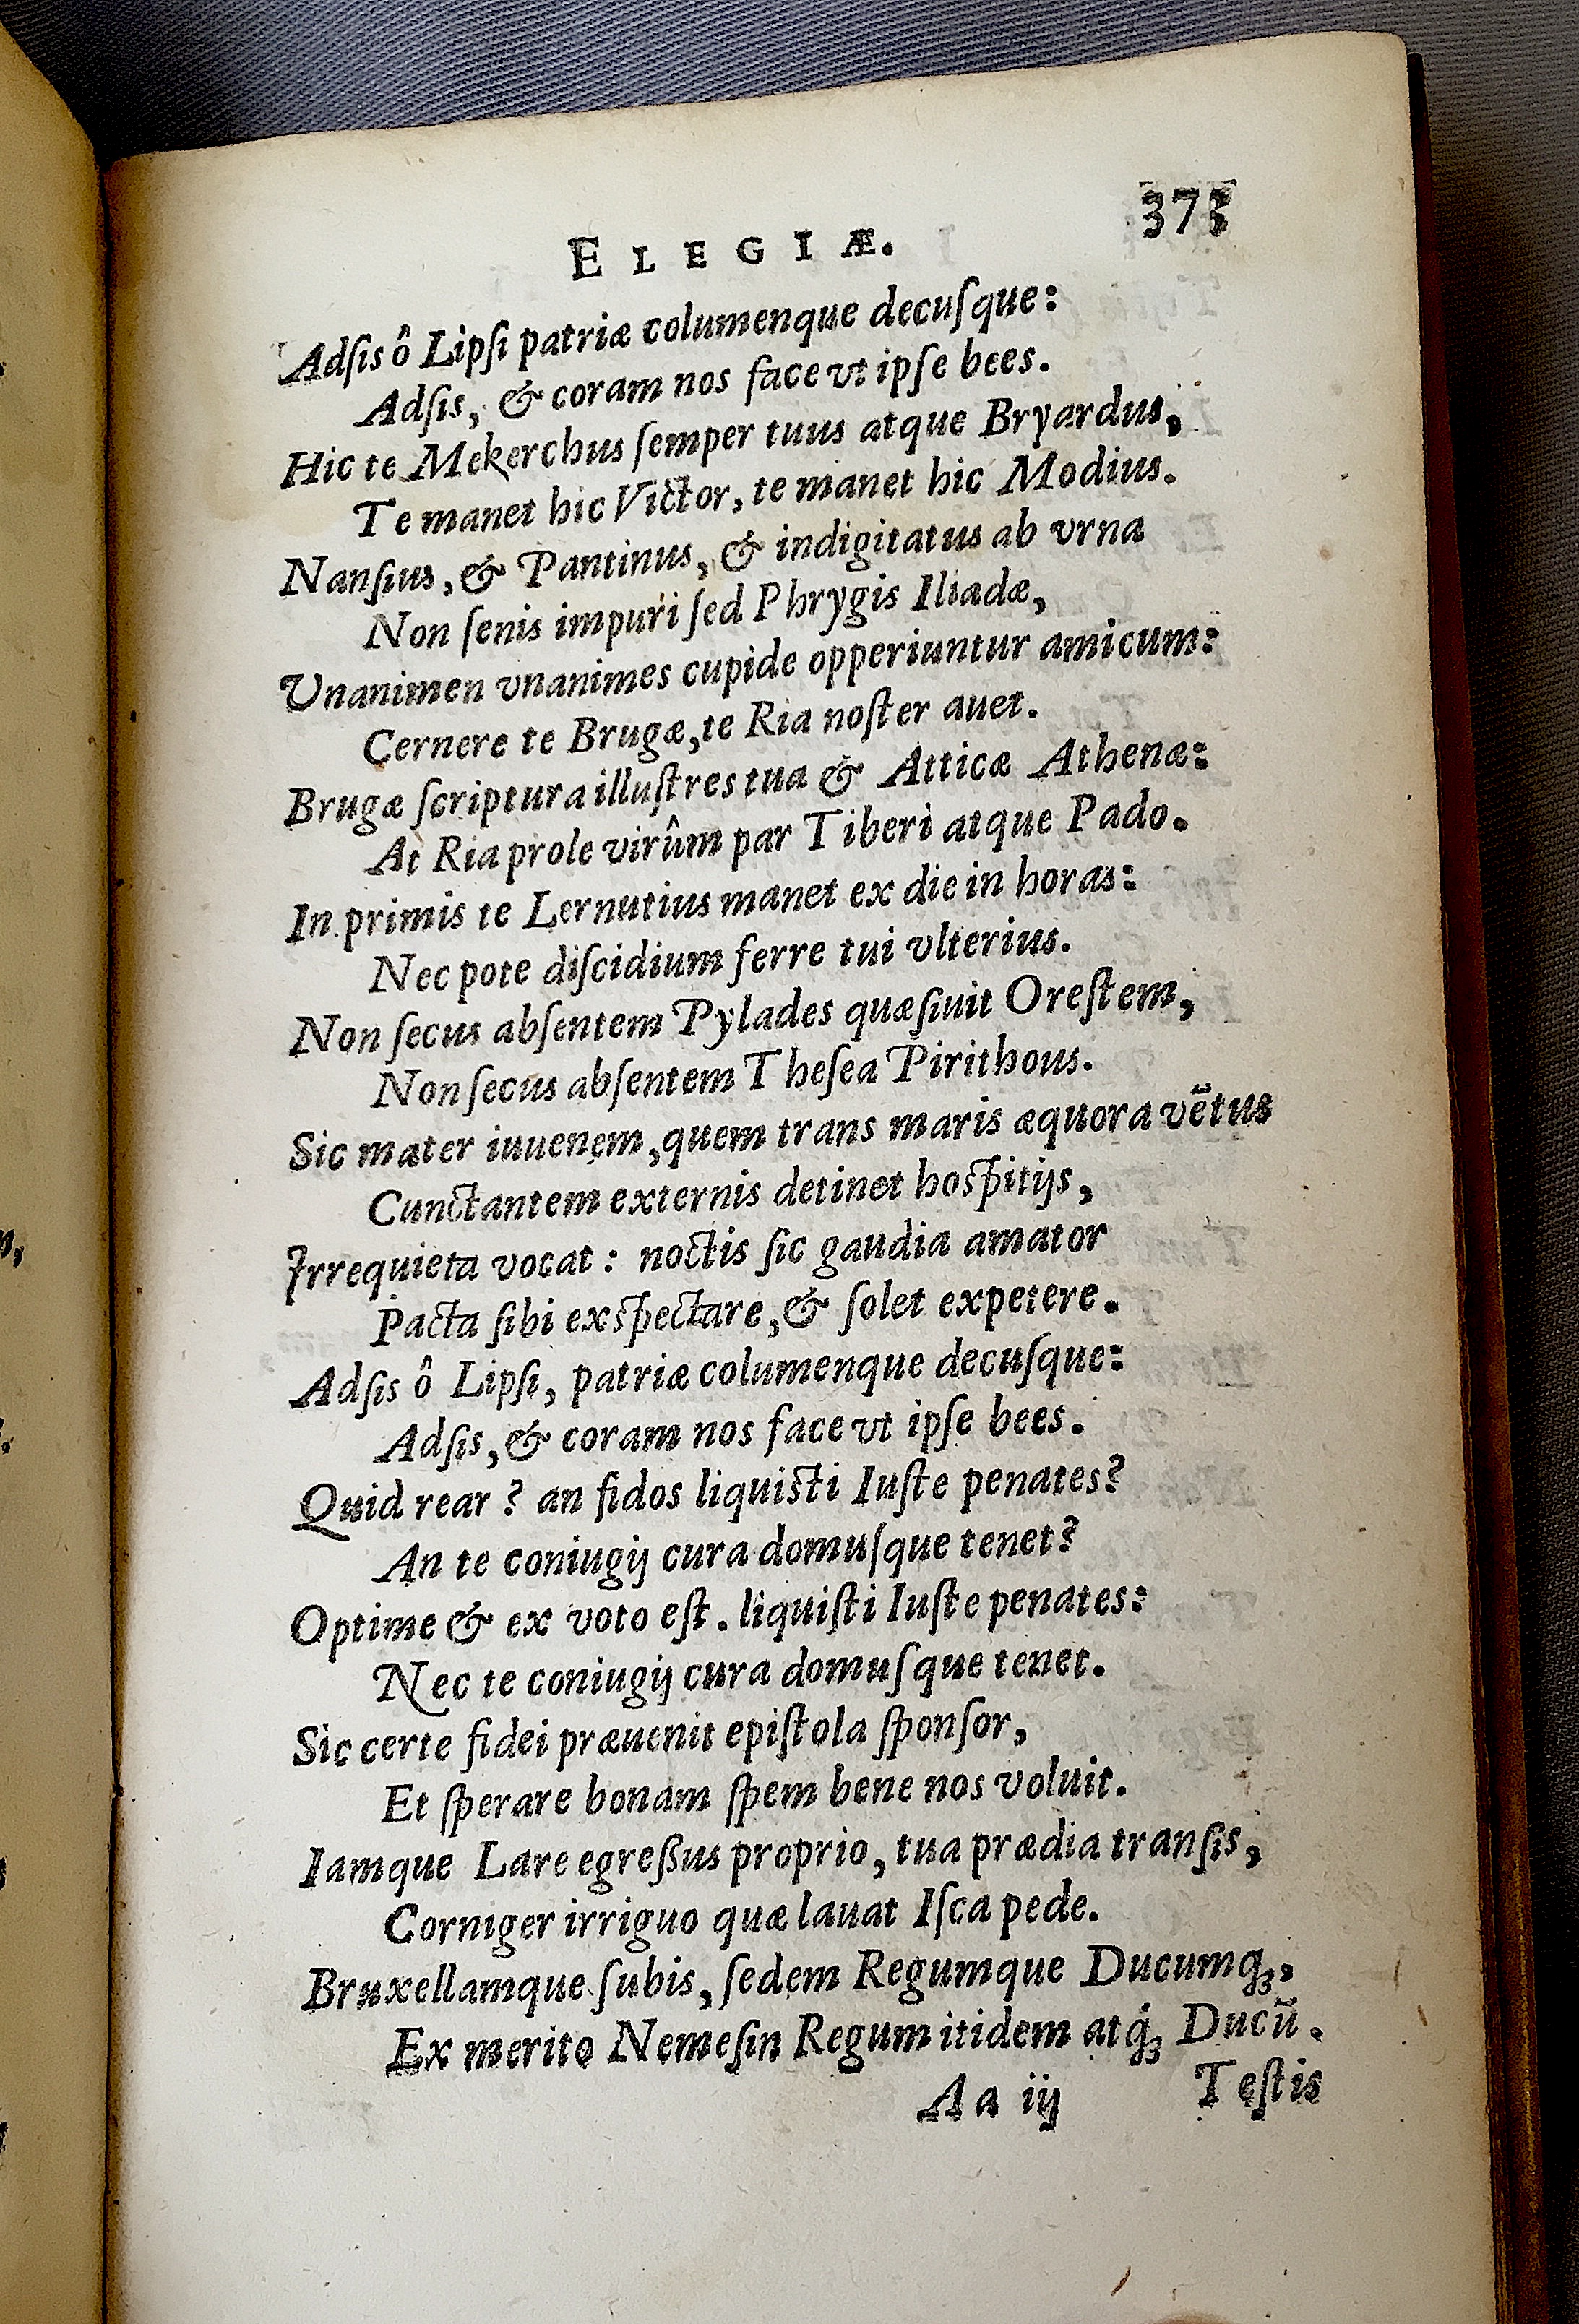 ELEGIÆ. 373
Adſis ô Lipſi patriæ columenque decuſque:
Adſis, & coram nos face vt ipſe bees.
Hic te Mekerchus ſemper tuus atque Bryardus,
Te manet hic Victor, te manet hic Modius.
Nanſius, & Pantinus, & indigitatus ab vrna
Non ſenis impuri ſed Phrygis Iliadæ,
Unanimen vnanimes cupide opperiuntur amicum:
Cernere te Brugæ, te Ria noſter auet.
Brugæ ſcriptura illuſtres tua & Atticæ Athenæ:
At Ria prole virûm par Tiberi atque Pado.
In primis te Lernutius manet ex die in horas:
Nec pote diſcidium ferre tui vlterius.
Non ſecus abſentem Pylades quæſiuit Oreſtem,
Non ſecus abſentem Theſea Pirithous.
Sic mater iuuenem, quem trans maris æquora vẽtus
Cunctantem externis detinet hoſpitijs,
Irrequieta vocat: noctis ſic gaudia amator
Pacta ſibi exſpectare, & ſolet expetere.
Adſis ô Lipſi, patriæ columenque decuſque:
Adſis, & coram nos face vt ipſe bees.
Quid rear? an fidos liquiſti Iuſte penates?
An te coniugij cura domuſque tenet?
Optime & ex voto eſt. liquiſti Iuſte penates:
Nec te coniugij cura domuſque tenet.
Sic certe fidei præuenit epiſtola ſponſor,
Et ſperare bonam ſpem bene nos voluit.
Iamque Lare egreßus proprio, tua prædia tranſis,
Corniger irriguo quæ lauat Iſca pede.
Bruxellamque ſubis, ſedem Regumque Ducumq́ꝫ,
Ex merito Nemeſin Regum itidem atq́ꝫ Ducũ.
Aa iij Teſtis